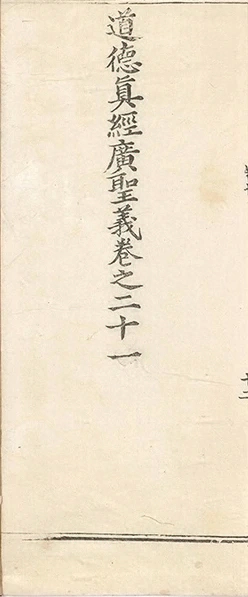 道德眞經廣聖義卷之二十一